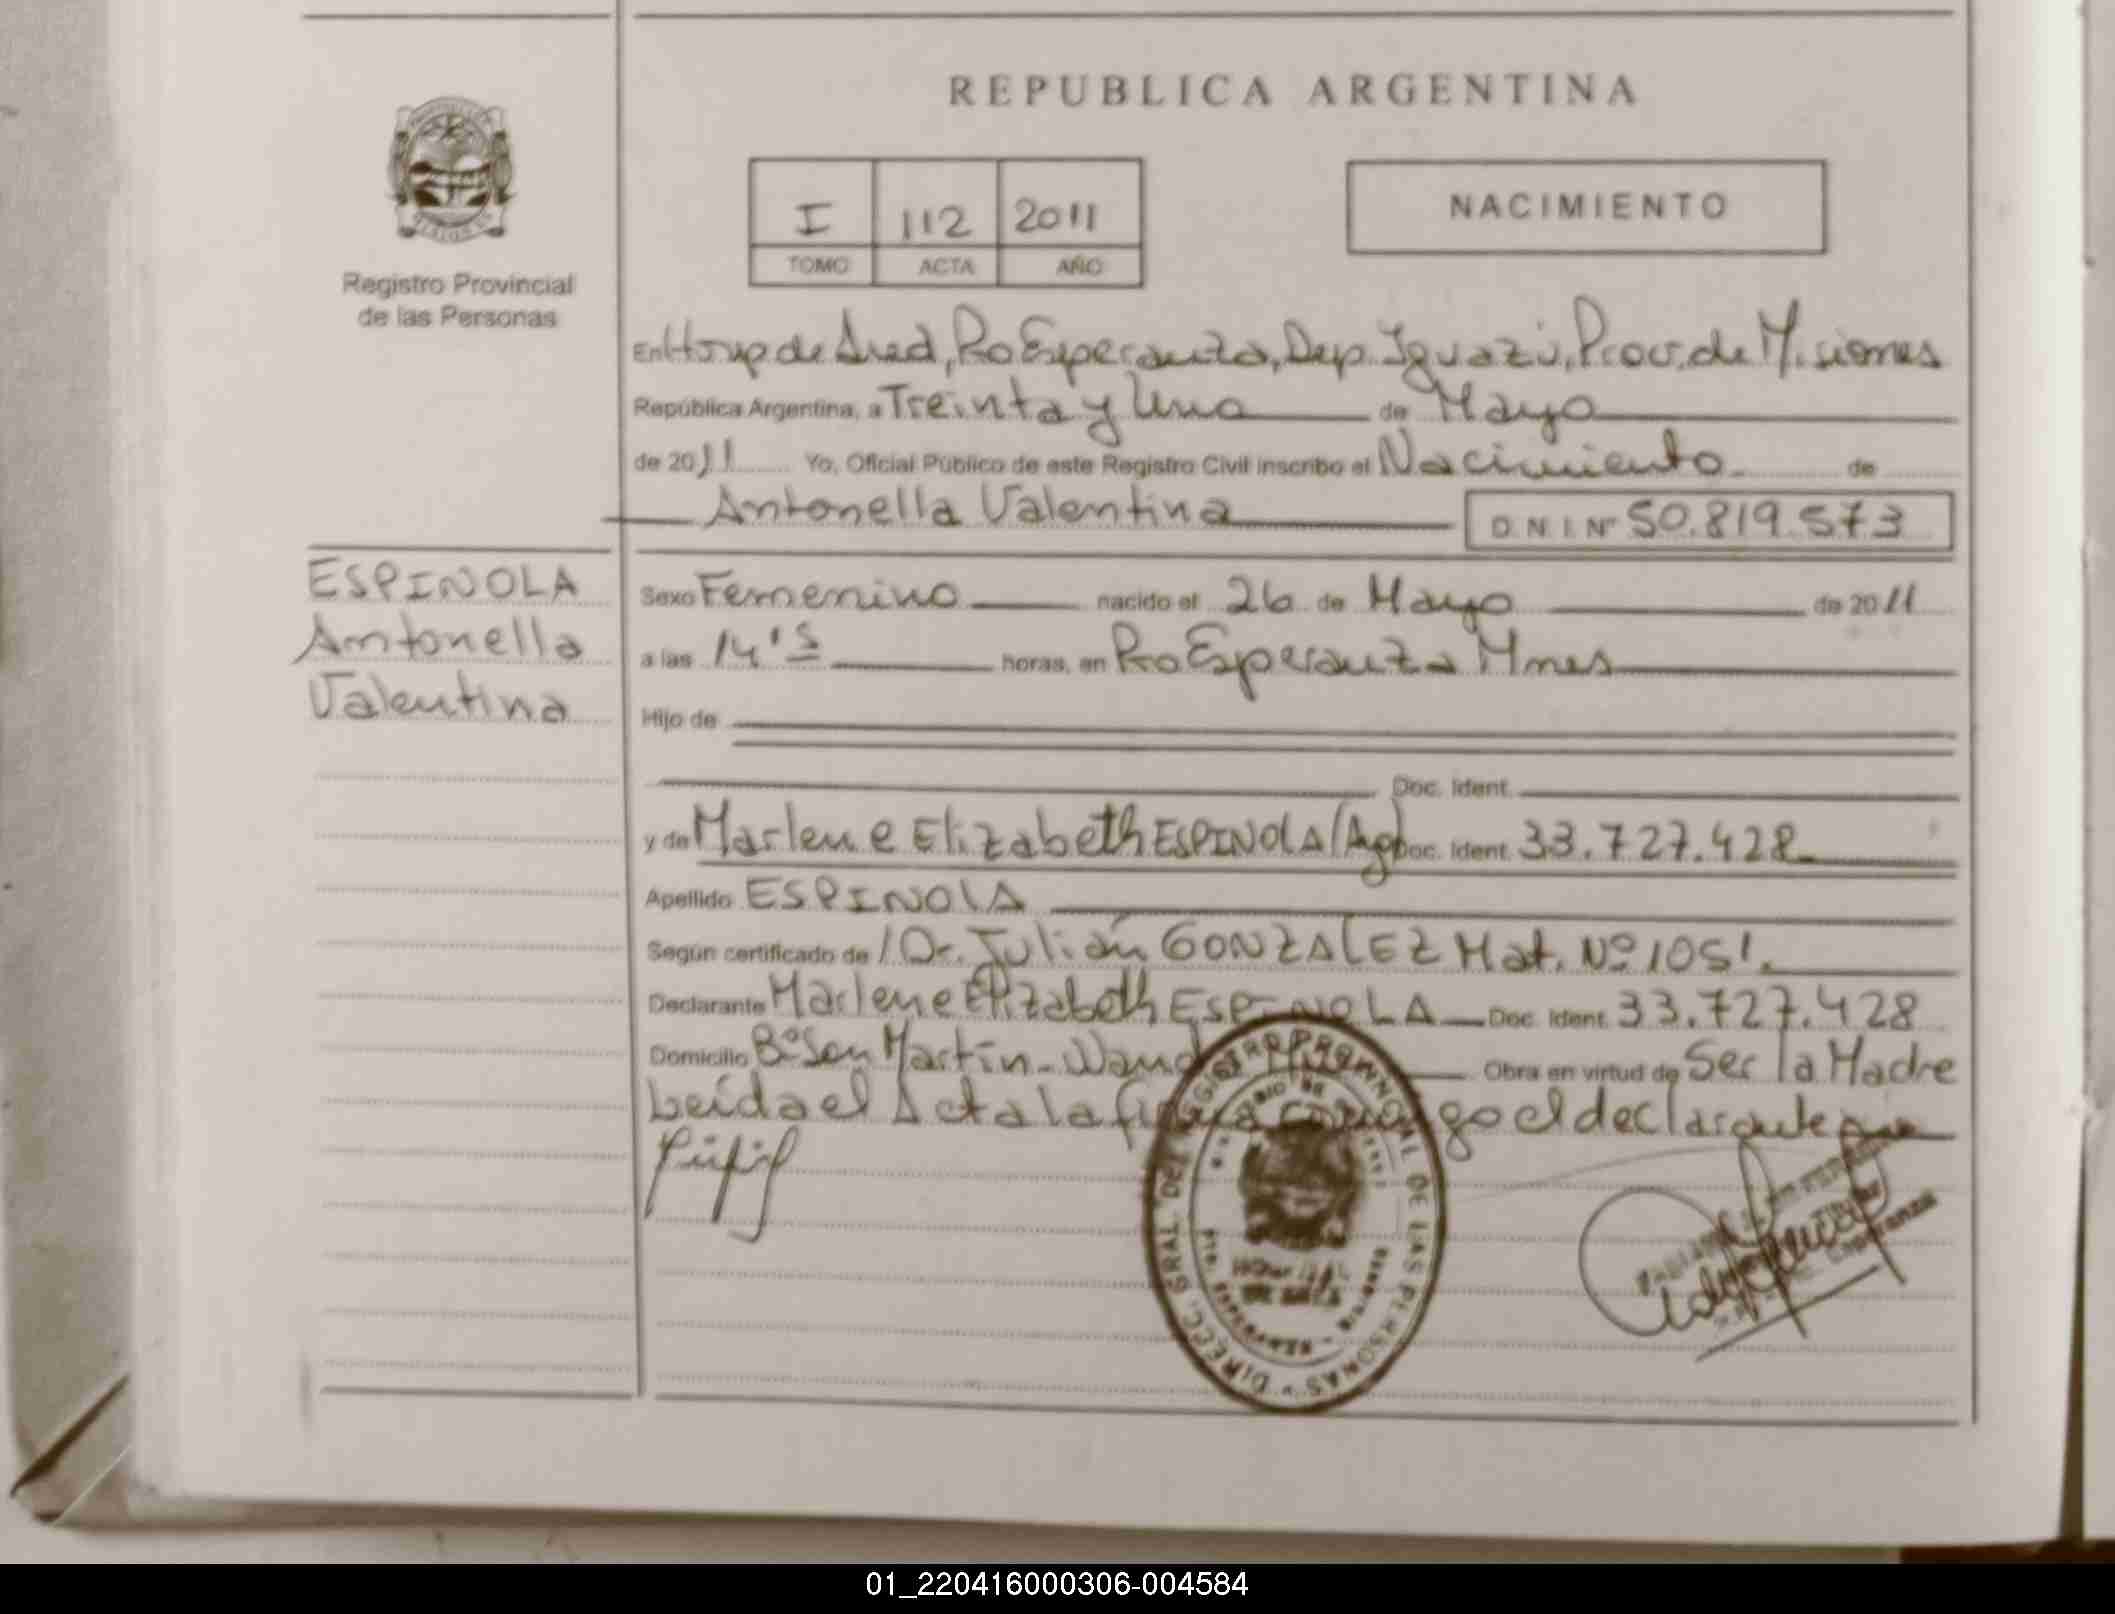 REPUBLICA ARGENTINA
I 112 2011
TOMO ACTA AÑO
NACIMIENTO
Registro Provincial
de las Personas
En Hosp de Sned, Pto Esperanza, Dep. Iguazú, Prov. de Misiones
República Argentina, a Treinta y Uno de Mayo
de 2011 Yo, Oficial Público de este Registro Civil inscribo el Nacimiento de
Antonella Valentina D.N.I. Nº 50.819.573
ESPINOLA
Antonella
Valentina
Sexo Femenino nacido el 26 de Mayo de 2011
a las 14'5 horas, en Pto Esperanza Mnes
Hijo de
Doc. Ident.
y de Marlene Elizabeth ESPINOLA (Ag) Doc. Ident. 33.727.428
Apellido ESPINOLA
Según certificado de Dr. Julián GONZALEZ Mat. Nº 1051.
Declarante Marlene Elizabeth ESPINOLA Doc. Ident. 33.727.428
Domicilio Bº San Martín - Wanda Obra en virtud de Ser la Madre
Leída el Acta la firma conmigo el declarante
DIRECC. GRAL. DEL REGISTRO PROVINCIAL DE LAS PERSONAS
01_220416000306-004584